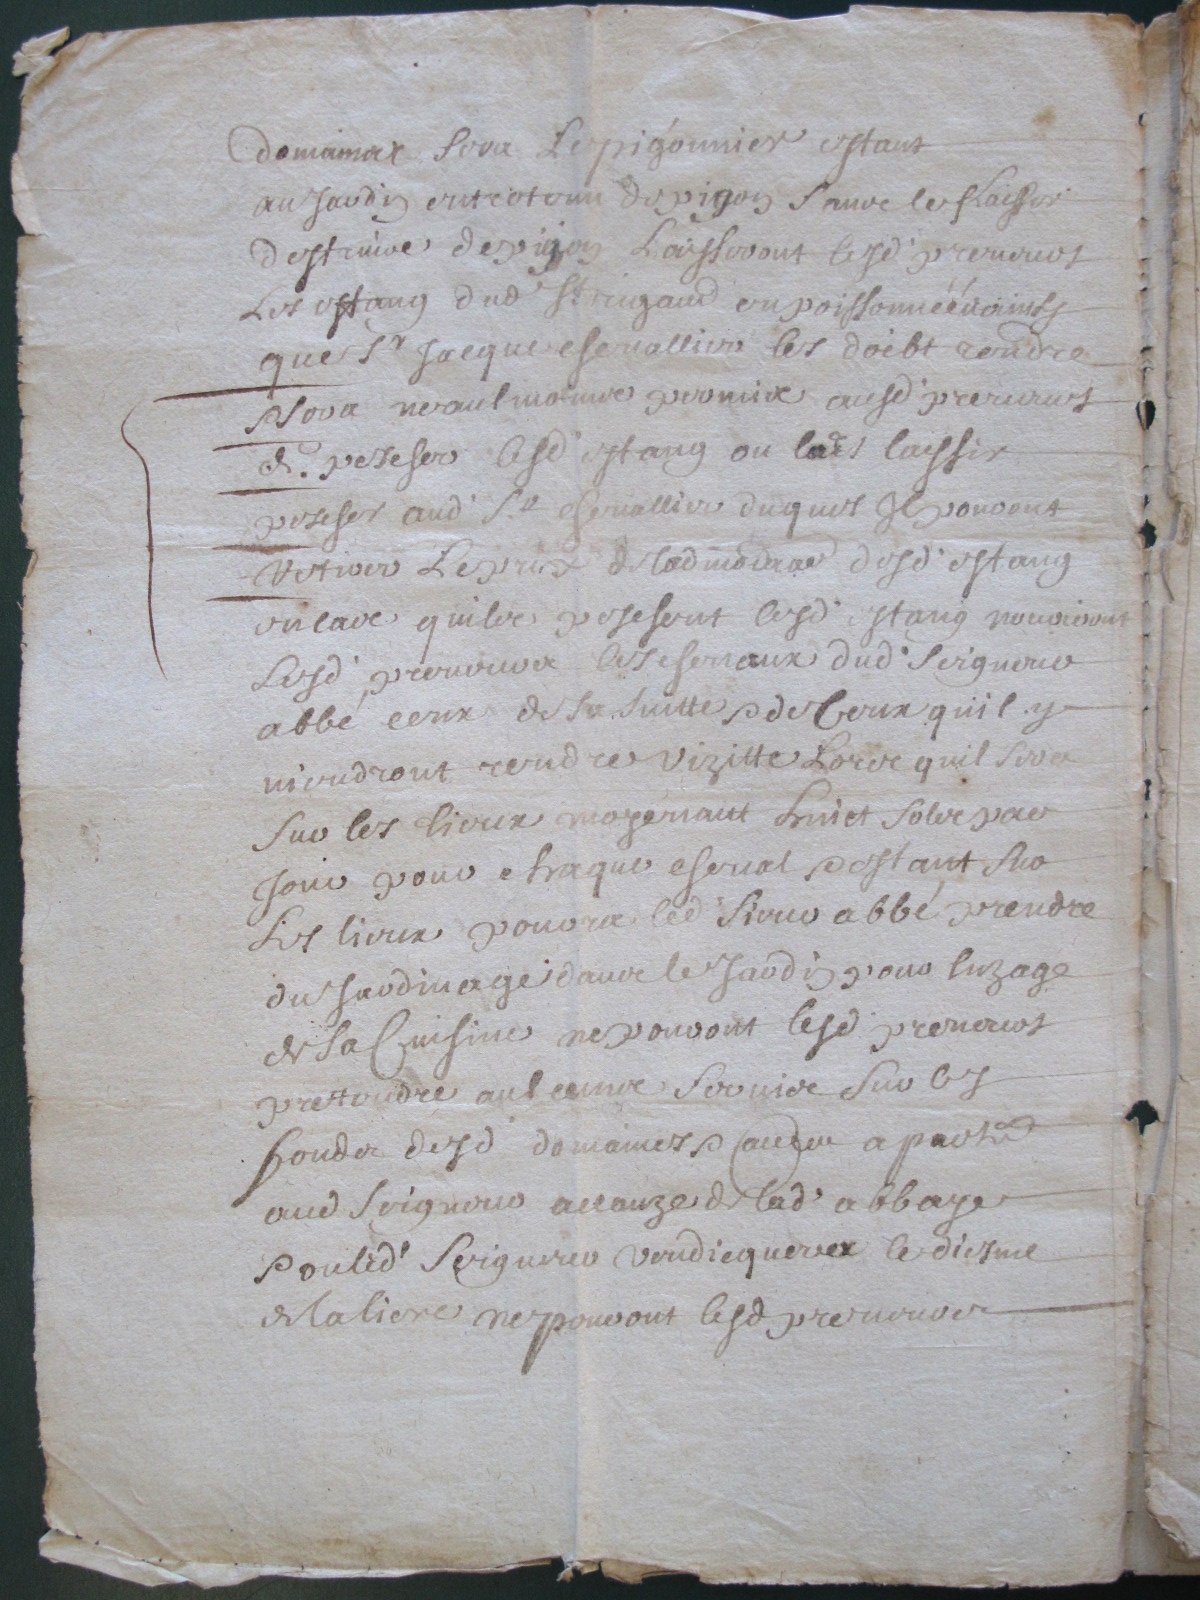 domainax sera Le pigonnier estant
au Jardin entretenu de pigon sance les Laisser
destruire de pigon Laisseront lesd' preneurs
Les estang dud' St rigaud enpoissonnée
que Sr Jacque chevallier les doibt rendre
sera neaulmoinre permix ausd' preneurs
de pescher lesd' estang ou laes laisser
pescher aud' Sr chevallier duquel Jl pouront
Retirer Le prix de lad desd' estang
en cave quilce pesehent lesd' estang nouriront
Lesd' preneure les chevaux dud' Seigneur
abbé ceux de sa suitte & de Ceux quil y
viendront rendre vizitte Lorce quil sera
sur les lieux moyenant huict solce par
Jour pour chaque cheval & estant sur
Les lieux poura led' Sieur abbé prendre
du Jardinage dance le Jardin pour luzage
de sa Cuisine ne pouront lesd' preneurs
prettendre aulcunne service sur les
fondx desd' domaines &
aud Seigneur a cauze de lad' abbaye
& ou led' Seigneur vendicquerex le diesme
de laliere ne pouront lesd preneure